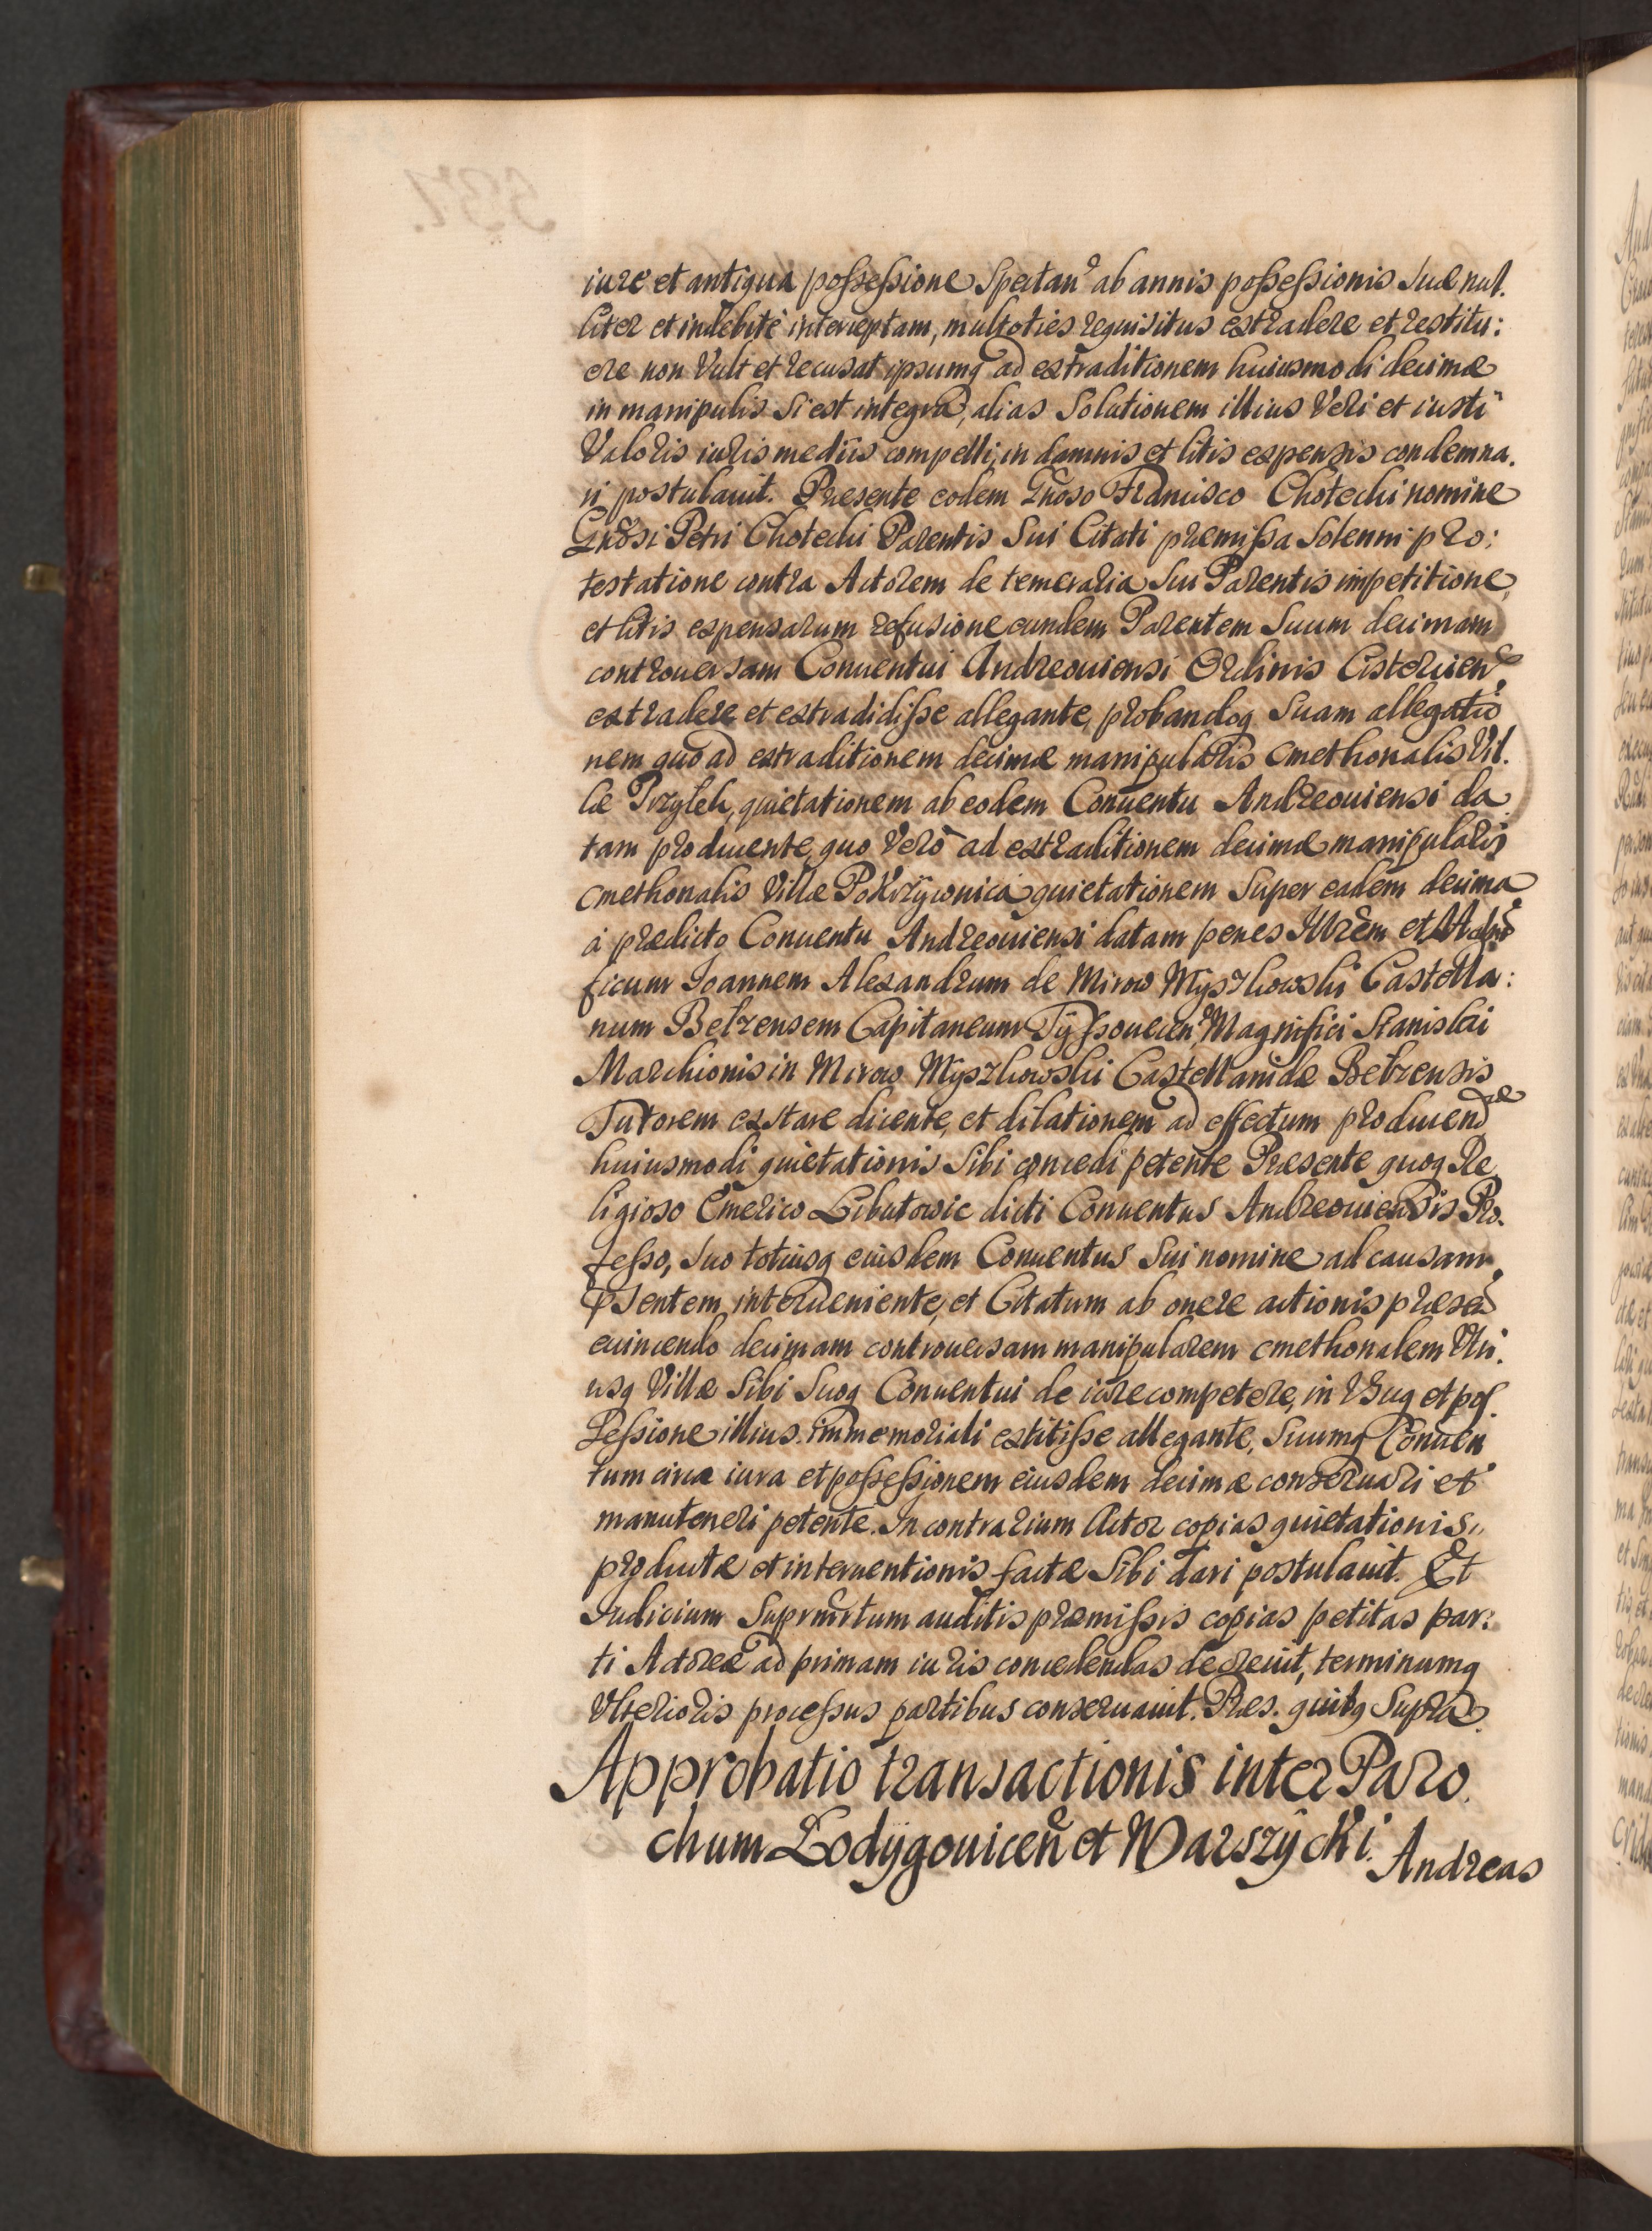 iure et antiqua possessione Spectan ab annis possessionis Suæ nul.
liter et indebitè interceptam, multoties requisitus extradere et restitu:
ere non Vult et recusat ipsumq ad extraditionem huiusmodi decimæ
in manipulis Si est integra, alias Solutionem illius Veri et iusti
Valoris iuris mediis compelli, in damnis et litis expensis condemna.
ri postulauit. Præsente eodem Gnoso Francisco Chotecki nomine
Gnosi Petri Chotecki Parentis Sui Citati præmissa Solenni pro:
testatione contra Actorem de temeraria Sui Parentis impetitione,
et litis expensarum refusione eundem Parentem Suum decimam
controuersam Conuentui Andreouiensi Ordinis Cistercien
extradere et extradidisse allegante, probandoq Suam allegatio
nem quo ad extraditionem decimæ manipularis cmethonalis Vil.
læ Przyłęk, quietationem ab eodem Conuentu Andreouiensi da
tam producente, quo Verò ad extraditionem decimæ manipularis
cmethonalis Villæ Pokrzywnica quietationem Super eadem decima
à prædicto Conuentu Andreouiensi datam penes Illrem et Magni
ficum Ioannem Alexandrum de Mirow Myszkowski Castella:
num Belzensem Capitaneum Tyssouiecen, Magnifici Stanislai
Marchionis in Mirow Myszkowski Castellanidæ Belzensis
Tutorem extare dicente, et dilationem ad effectum producendæ
huiusmodi quietationis Sibi concedi petente Præsente quoq Re
ligioso Emerico Libutowic dicti Conuentus Andreouiensis Pro.
fesso, Suo totiusq eiusdem Conuentus Sui nomine ad causam
pSentem interueniente, et Citatum ab onere actionis præsen
euincendo decimam controuersam manipularem cmethonalem Vtri.
usq Villæ Sibi Suoq Conuentui de iure competere, in Vsuq et pos.
Sessione illius immemoriali extitisse allegante, Suumq Conuen
tum circa iura et possessionem eiusdem decimæ conseruari et
manuteneri petente. In contrarium Actor copias quietationis
productæ et interuentionis factæ Sibi dari postulauit. Et
Iudicium Suprmtum auditis præmissis copias petitas par:
ti Actoreæ ad primam iuris concedendas decreuit, terminumq
Vlterioris processus partibus conseruauit. Præs. quibq Supra.
Approbatio transactionis inter Paro.
chum Łodygouicen et Warszycki.
Andreas